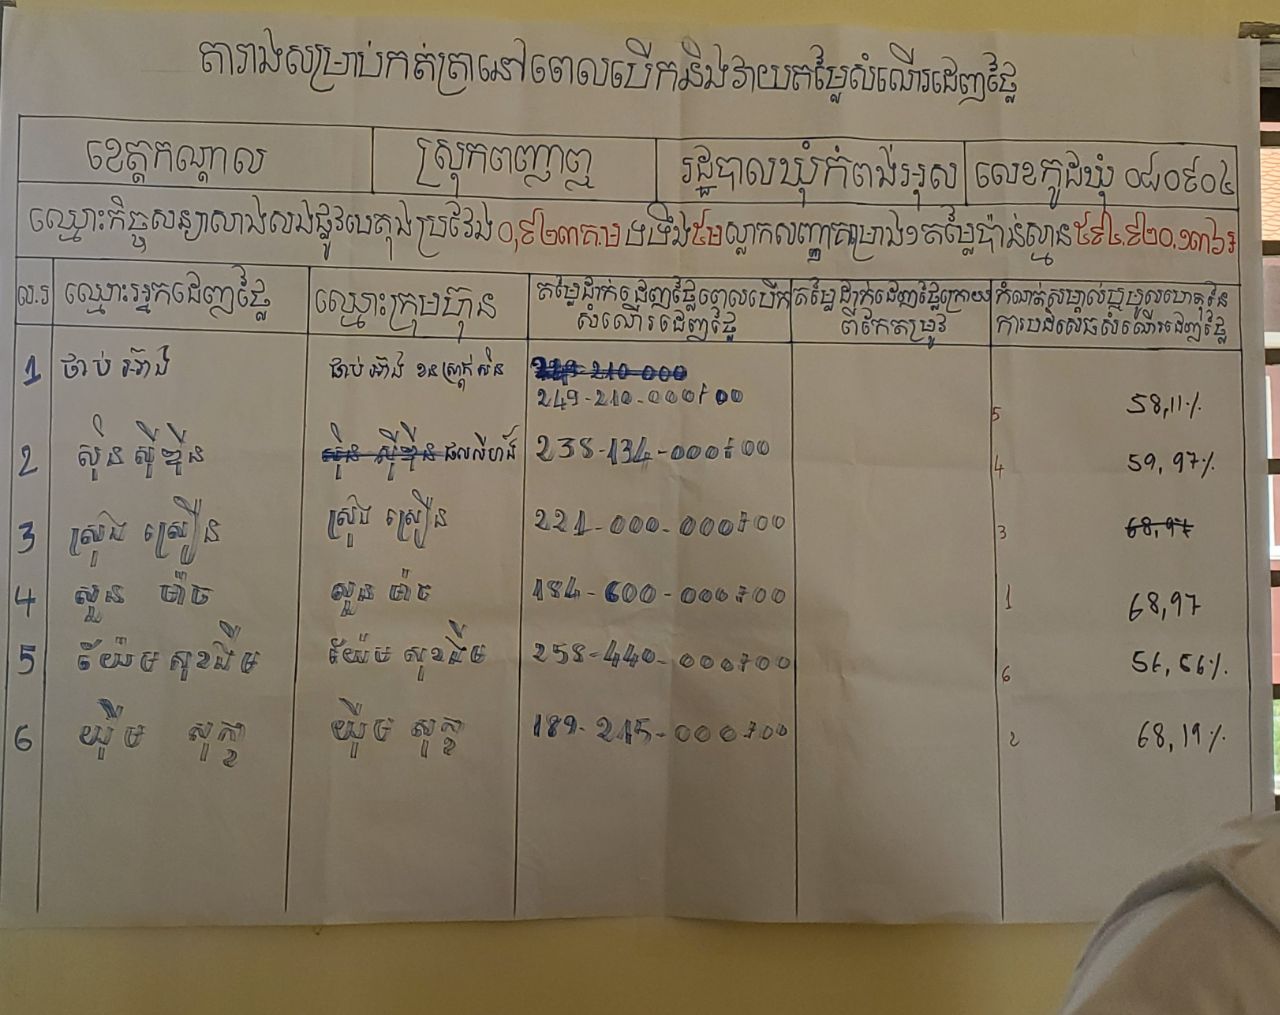 តារាងសម្រាប់កត់ត្រានៅពេលបើកនិងវាយតម្លៃសំណើរដេញថ្លៃ
ខេត្តកណ្តាល ស្រុកពញាឮ រដ្ឋបាលឃុំកំពង់អុស លេខកូដឃុំ ០៨០៩០៤
ឈ្មោះកិច្ចសន្យាសាងសង់ផ្លូវបេតុងប្រវែង ០,៩២៣គ.ម ទទឹង ៥ម ស្លាកសញ្ញាគម្រោង១ តម្លៃប៉ាន់ស្មាន ៥៩៤.៩២០.១៣៦៛
ល.រ ឈ្មោះអ្នកដេញថ្លៃ ឈ្មោះក្រុមហ៊ុន តម្លៃដាក់ដេញថ្លៃពេលបើកសំណើរដេញថ្លៃ តម្លៃដាក់ដេញថ្លៃក្រោយពីកែតម្រូវ កំណត់សម្គាល់ឬមូលហេតុនៃការបដិសេធសំណើរដេញថ្លៃ
1 ថាប់ អ៊ាង ថាប់ អ៊ាង ខនស្រ្តាក់សិន 249-210-000៛00 5 58,11%
2 ស៊ិន ស៊ីឌ្ឍីន ស៊ិន ស៊ីឌ្ឍីន ផលលីហេង 238-134-000៛00 4 59,97%
3 ស្រ៊ុង ស្រឿន ស្រ៊ុង ស្រឿន 221-000-000៛00 3 68,97
4 សួន ម៉ាច សួន ម៉ាច 184-600-000៛00 1 68,97
5 យ៉ែម សុខងឹម យ៉ែម សុខងឹម 258-440-000៛00 6 56,56%
6 យ៉ឹម សុក្ខា យ៉ឹម សុក្ខា 189-215-000៛00 2 68,19%